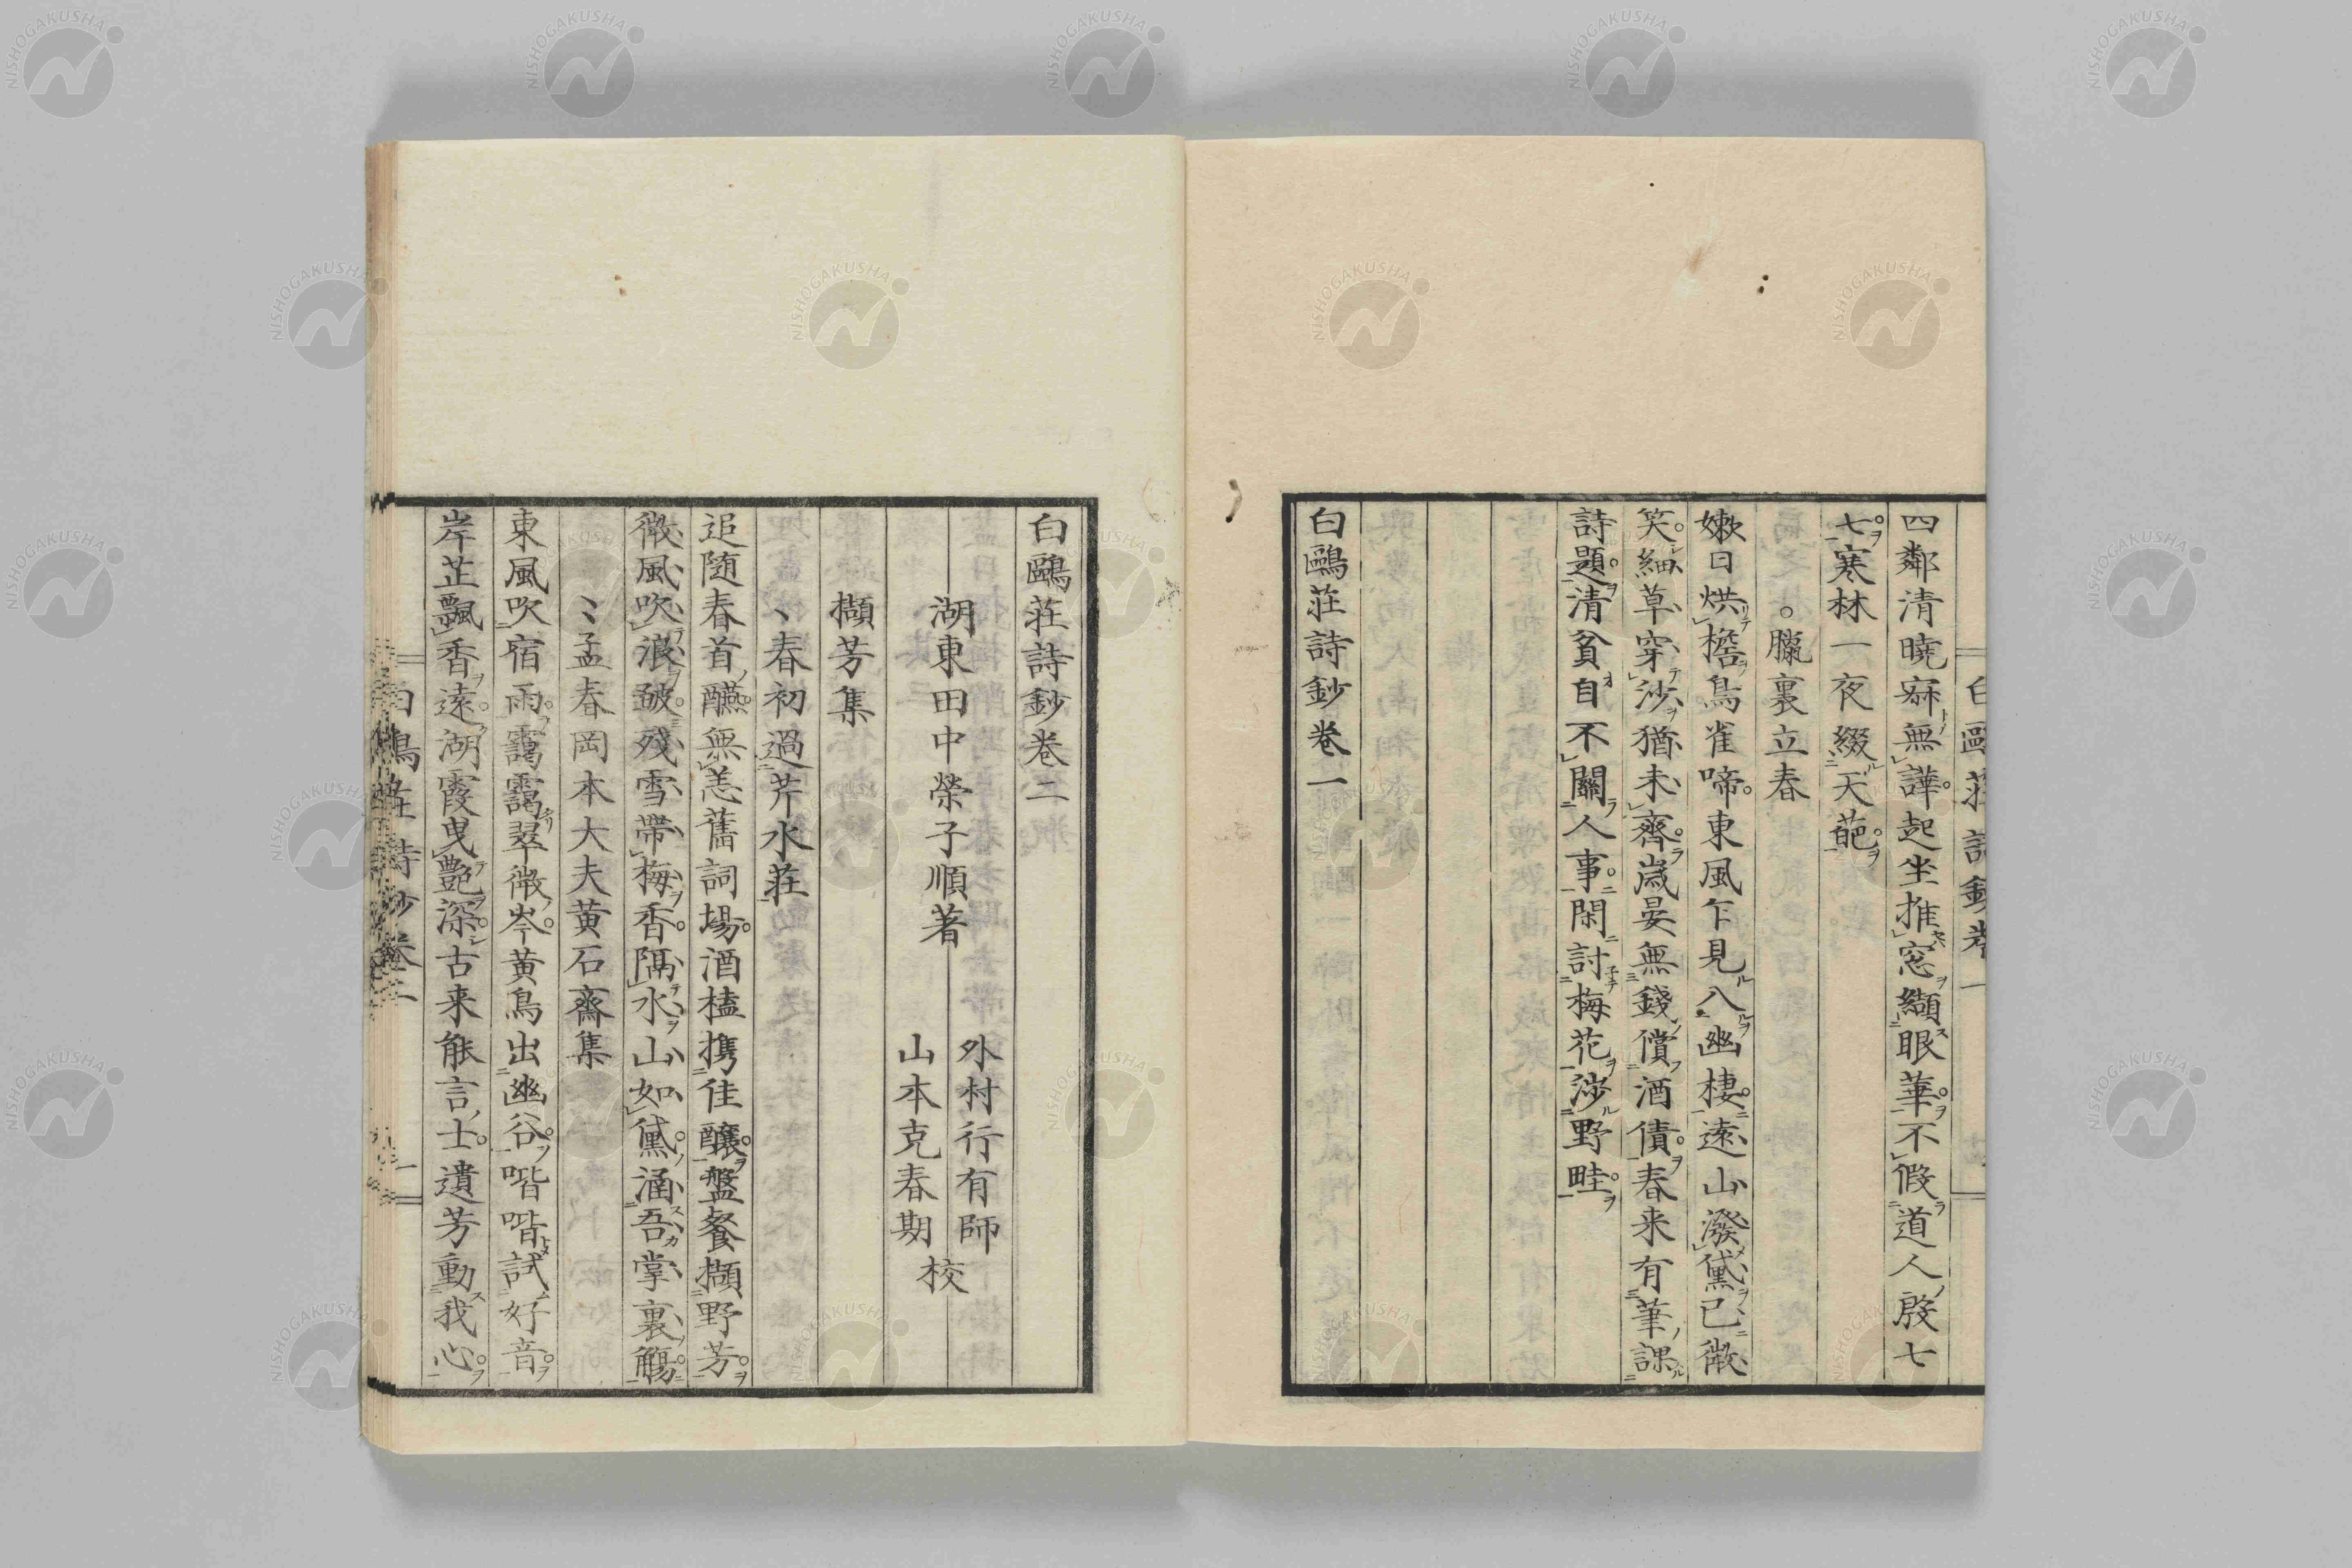 四鄰清曉寐無譁起坐推窓纈眼華不假道人殷七
七寒林一夜綴天葩
臘裏立春
嫩日烘檐鳥雀啼東風乍見入幽棲遠山潑黛已微
笑細草穿沙猶未齊歳晏無錢償酒債春来有筆課
詩題清貧自不關人事閑討梅花渉野畦
白鷗莊詩鈔卷一
白鷗莊詩鈔卷二
湖東田中榮子順著
外村行有師
山本克春期
校
擷芳集
春初過芹水莊
追随春首醼無恙舊詞場酒榼携佳釀盤餐擷野芳
微風吹浪皺殘雪帶梅香隔水山如黛涵吾掌裏觴
孟春岡本大夫黄石齋集
東風吹宿雨靄靄翠微岑黄鳥出幽谷喈喈試好音
岸芷飄香遠湖霞曳艷深古来能言士遺芳動我心
白鷗莊詩鈔卷二
一
NISHOGAKUSHA